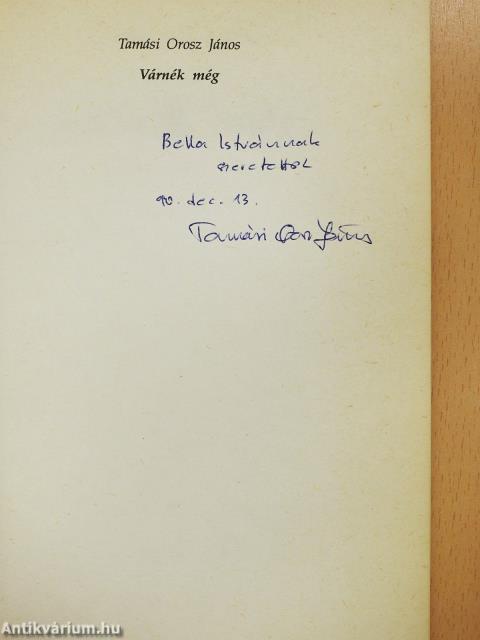 Tamási Orosz János
Várnék még
Bella Istvánnak
szeretettel
90. dec. 13.
Tamási Orosz János
Antikvárium.hu